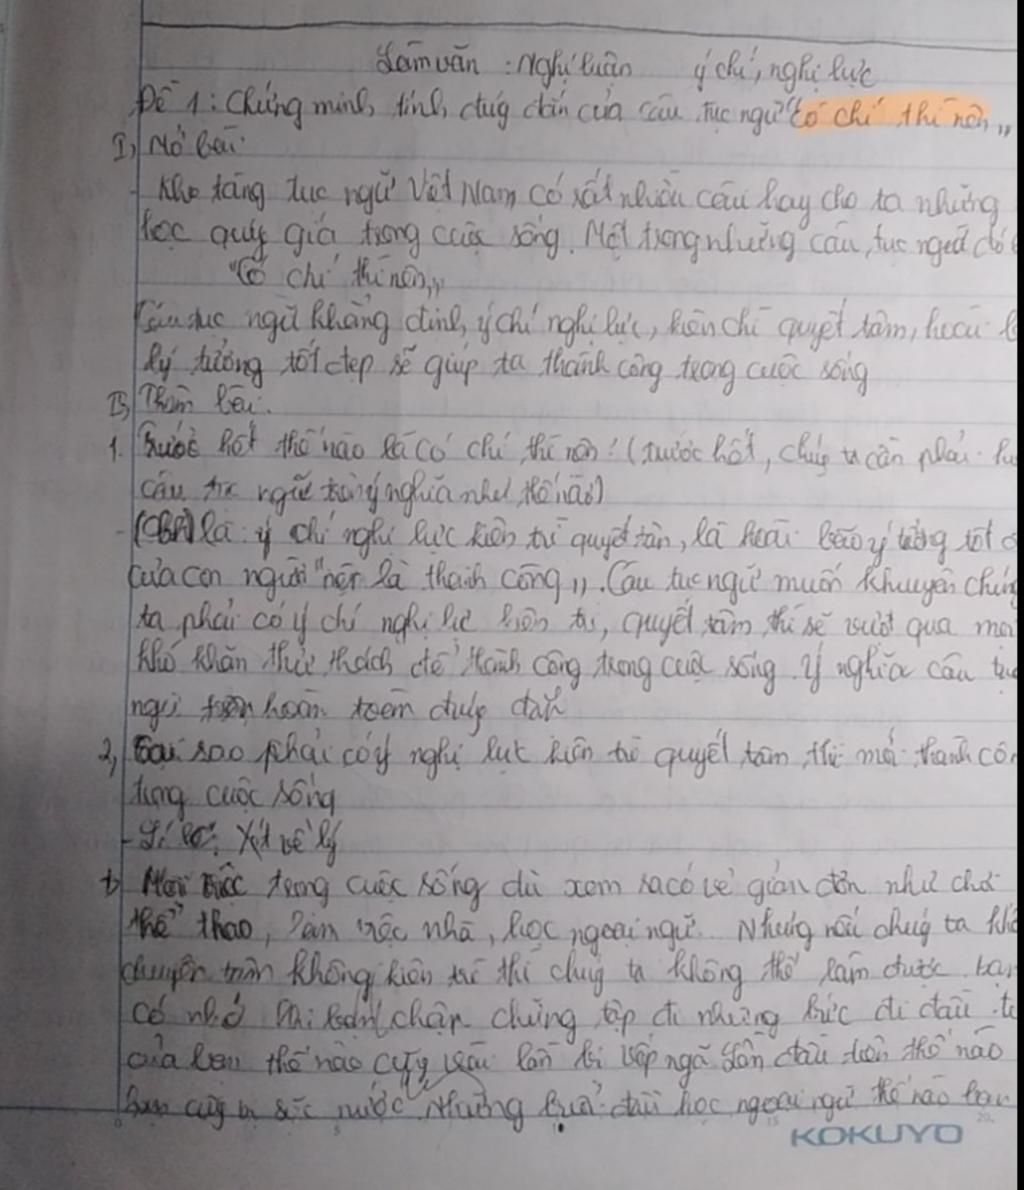 Làm văn: Nghị luận ý chí, nghị lực
Đề 1: Chứng minh tính đúg đắn của câu tục ngữ "Có chí thì nên,,
I, Mở bài
- Kho tàng tục ngữ Việt Nam có rất nhiều câu hay cho ta những
học quý giá trong cuộc sống. Một trong những câu tục ngữ đó
"Có chí thì nên,,
Câu tục ngữ khẳng định ý chí nghị lực, kiên chì quyết tâm, hoài
lý tưởng tốt đẹp sẽ giúp ta thành công trong cuộc sống
II, Thân bài.
1. Trước hết thế nào là có chí thì nên! (trước hết, chúg ta cần phải
câu tục ngữ ý nghĩa như thế nào)
- là ý chí nghị lực kiên trì quyết tân, là hoài bão ý tưởng tốt
của con người "nên là thành công,,. Câu tục ngữ muốn khuyên chúng
ta phải có ý chí nghị lực kiên trì, quyết tâm thì sẽ vượt qua mọi
khó khăn thử thách để thành công trong cuộc sống. ý nghĩa câu tục
ngữ hoàn toàn đúg đắn
2, Tại sao phải có ý nghị lực kiên trì quyết tâm thì mới thành cô
trong cuộc sống
- Xét về lý
+ Mọi việc trong cuộc sống dù xem ra có vẻ giản đơn như chơi
thể thao, làm việc nhà, học ngoại ngữ. Nhưng nếu chúg ta
chuyên không kiên trì thì chúg ta không thể làm được. bạn
có nhớ chập chững tập đi những bước đi đầu
của bạn thế nào cũg vấp ngã lần đầu tiên thế nào
bạn cũg bị sặc nước Những buổi đầu học ngoại ngữ thế nào bạn
KOKUYO